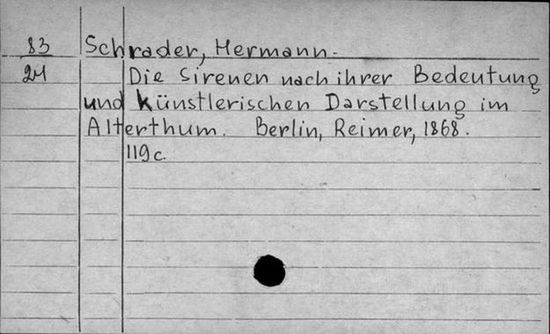 83 Schrader, Hermann.
24 Die Sirenen nach ihrer Bedeutung
und künstlerischen Darstellung im
Alterthum. Berlin, Reimer, 1868.
119 c.